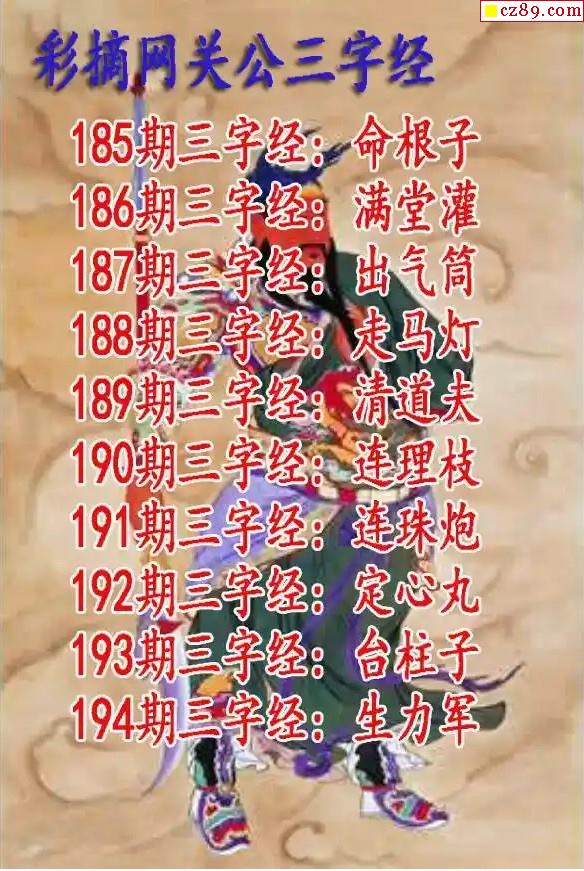 cz89.com
彩摘网关公三字经
185期三字经：命根子
186期三字经：满堂灌
187期三字经：出气筒
188期三字经：走马灯
189期三字经：清道夫
190期三字经：连理枝
191期三字经：连珠炮
192期三字经：定心丸
193期三字经：台柱子
194期三字经：生力军